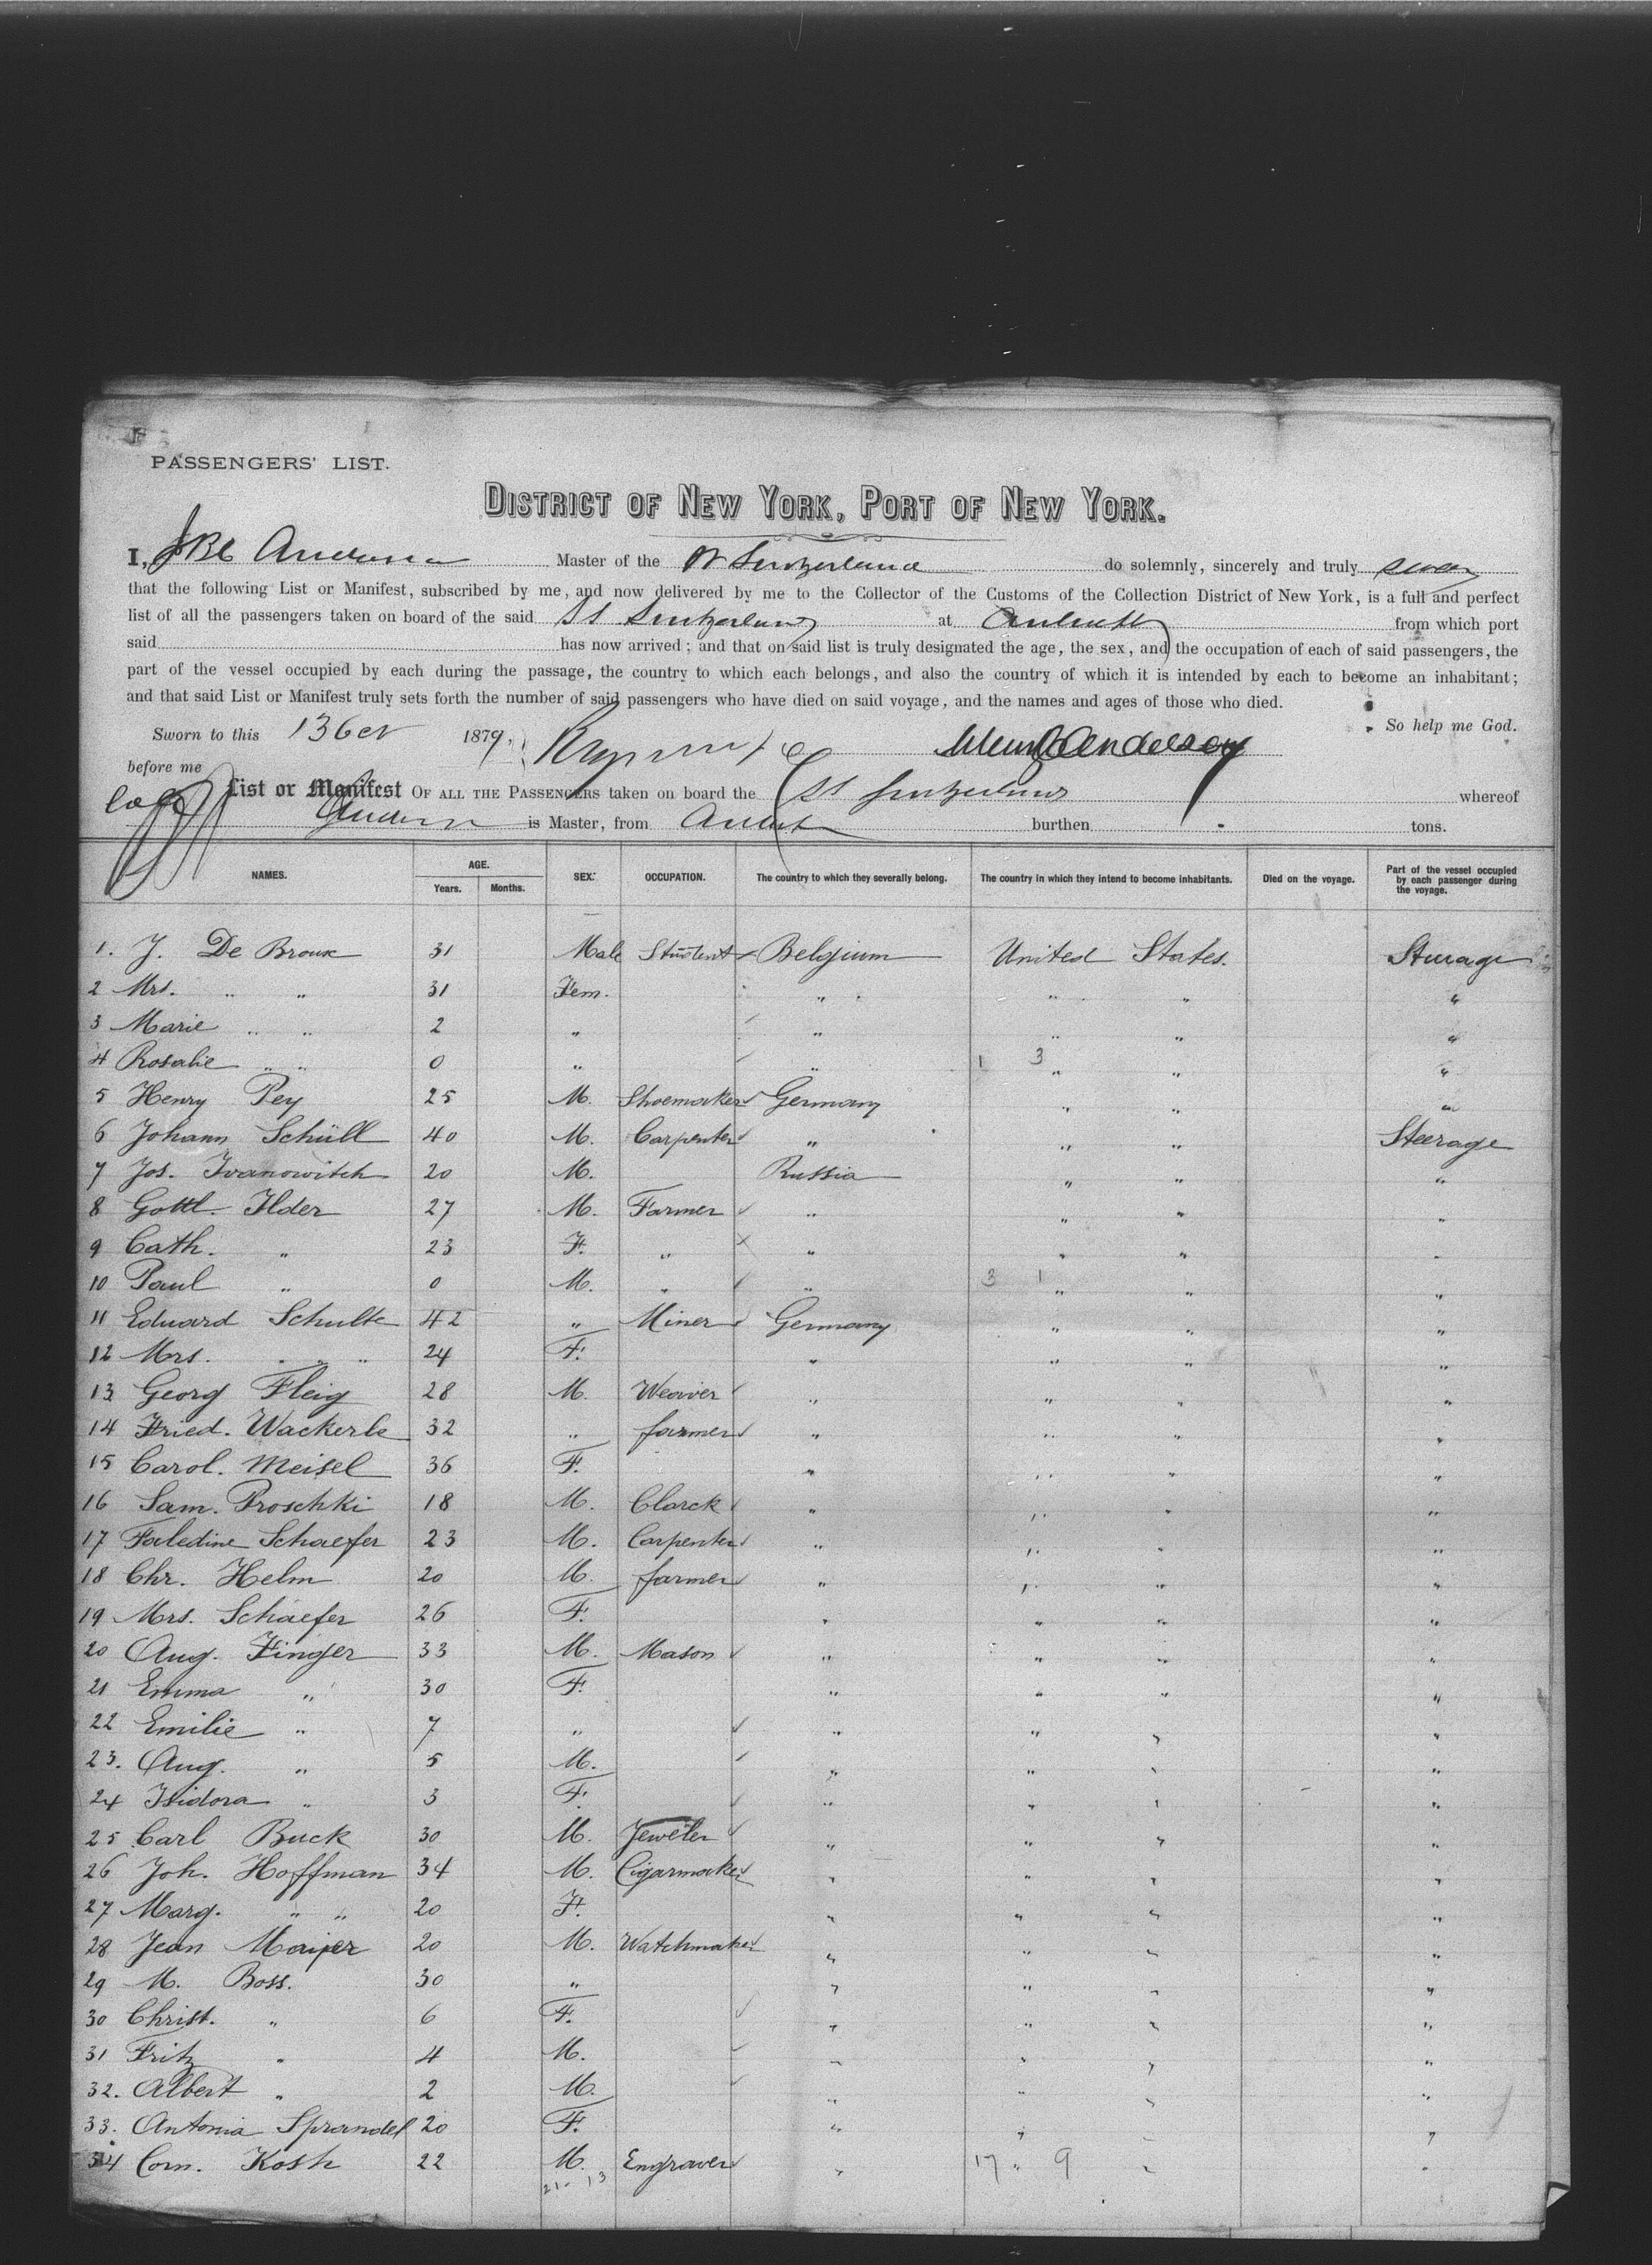 PASSENGERS' LIST.
DISTRICT OF NEW YORK, PORT OF NEW YORK.
I, Master of the Switzerland do solemnly, sincerely and truly swear
that the following List or Manifest, subscribed by me, and now delivered by me to the Collector of the Customs of the Collection District of New York, is a full and perfect
list of all the passengers taken on board of the said SS Switzerland at from which port
said has now arrived; and that on said list is truly designated the age, the sex, and the occupation of each of said passengers, the
part of the vessel occupied by each during the passage, the country to which each belongs, and also the country of which it is intended by each to become an inhabitant;
and that said List or Manifest truly sets forth the number of said passengers who have died on said voyage, and the names and ages of those who died.
So help me God.
Sworn to this 13 1879. Anderson
before me
List or Manifest OF ALL THE PASSENGERS taken on board the SS Switzerland whereof
is Master, from burthen tons.
NAMES. AGE. Years. Months. SEX. OCCUPATION. The country to which they severally belong. The country in which they intend to become inhabitants. Died on the voyage. Part of the vessel occupied by each passenger during the voyage.
1. J. De Brouk 31 Male Student Belgium United States. Sturage
2 Mrs. " " 31 Fem. " " " "
3 Marie " " 2 " " " " "
4 Rosalie " " 0 " " 1 3 " " "
5 Henry Pey 25 M. Shoemaker Germany " " "
6 Johann Schüll 40 M. Carpenter " " " Steerage
7 Jos. Ivanowitch 20 M. Russia " " "
8 Gottl. Ilder 27 M. Farmer " " " "
9 Cath. " 23 F. " " " " "
10 Paul " 0 M. " " 3 1 " " "
11 Eduard Schulte 42 " Miner Germany " " "
12 Mrs. " " " 24 F. " " " "
13 Georg Fleig 28 M. Weaver " " " "
14 Fried. Wackerle 32 " farmer " " " "
15 Carol. Meisel 36 F. " " " "
16 Sam. Proschki 18 M. Clarck " " " "
17 Faledine Schaefer 23 M. Carpenter " " " "
18 Chr. Helm 20 M. farmer " " " "
19 Mrs. Schaefer 26 F. " " " "
20 Aug. Finger 33 M. Mason " " " "
21 Emma " 30 F. " " " "
22 Emilie " 7 " " " " "
23. Aug. " 5 M. " " " "
24 Isidora " 3 F. " " " "
25 Carl Buck 30 M. Jeweler " " " "
26 Joh. Hoffman 34 M. Cigarmaker " " " "
27 Marg. " " 20 F. " " " "
28 Jean 20 M. Watchmaker " " " "
29 M. Boss. 30 " " " " "
30 Christ. " 6 F. " " " "
31 Fritz " 4 M. " " " "
32. Albert " 2 M. " " " "
33. Antonia Sprandel 20 F. " " " "
34 Corn. Kosh 22 M. Engraver " 17 " 9 " "
21 - 13